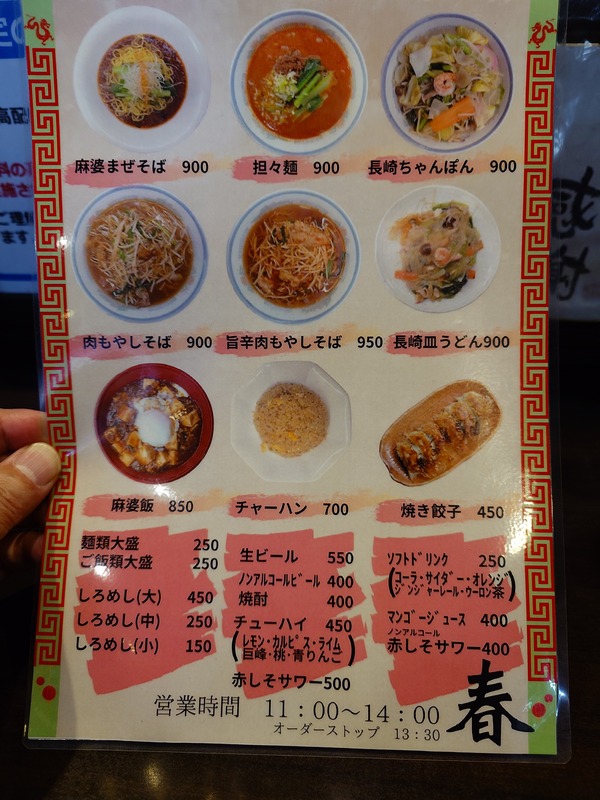 麻婆まぜそば 900
担々麺 900
長崎ちゃんぽん 900
肉もやしそば 900
旨辛肉もやしそば 950
長崎皿うどん900
麻婆飯 850
チャーハン 700
焼き餃子 450
麺類大盛 250
ご飯類大盛 250
しろめし(大) 450
しろめし(中) 250
しろめし(小) 150
生ビール 550
ノンアルコールビール 400
焼酎 400
チューハイ 450
(レモン・カルピス・ライム
巨峰・桃・青りんご)
赤しそサワー500
ソフトドリンク 250
(コーラ・サイダー・オレンジ
ジンジャーレール・ウーロン茶)
マンゴージュース 400
ノンアルコール
赤しそサワー400
営業時間 11：00〜14：00
オーダーストップ 13：30
春
感謝